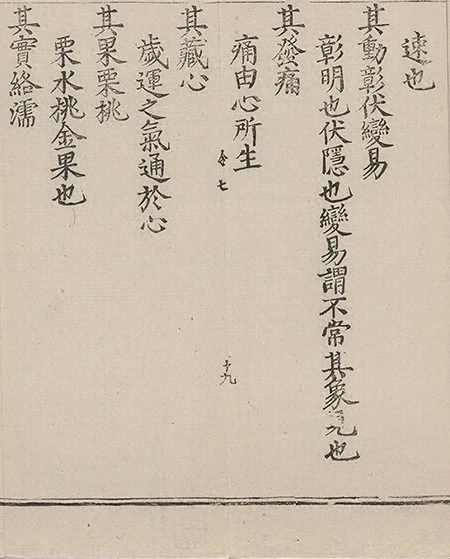 速也
其動彰伏變易
彰明也伏隱也變易謂不常其象見也
其發痛
痛由心所生
令七
十九
其藏心
歲運之氣通於心
其果栗桃
栗水桃金果也
其實絡濡